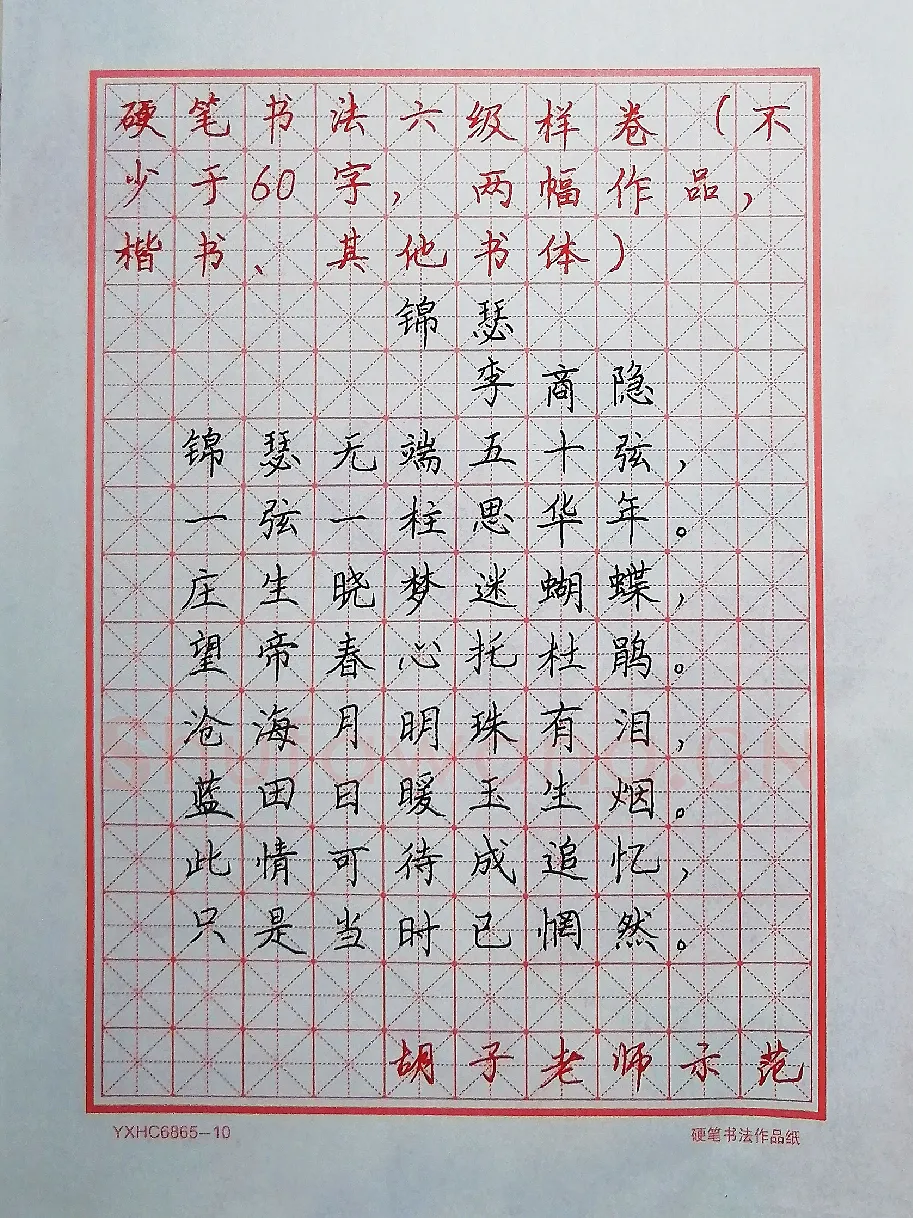 硬笔书法六级样卷（不
少于60字，两幅作品，
楷书、其他书体）
锦瑟
李商隐
锦瑟无端五十弦，
一弦一柱思华年。
庄生晓梦迷蝴蝶，
望帝春心托杜鹃。
沧海月明珠有泪，
蓝田日暖玉生烟。
此情可待成追忆，
只是当时已惘然。
胡子老师示范
YXHC6865-10
硬笔书法作品纸